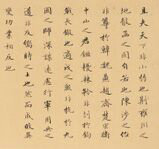 且夫天下非小弱也雍州之
地殽函之固自若也陳涉之
位非尊於齊楚燕趙韓魏宋衛
中山之君鉏耰棘矜非銛於句
戟長鎩也適戍之衆非抗於九
國之師深謀遠慮行軍用兵之
道非及鄉時之士也然而成敗異
變功業相反也